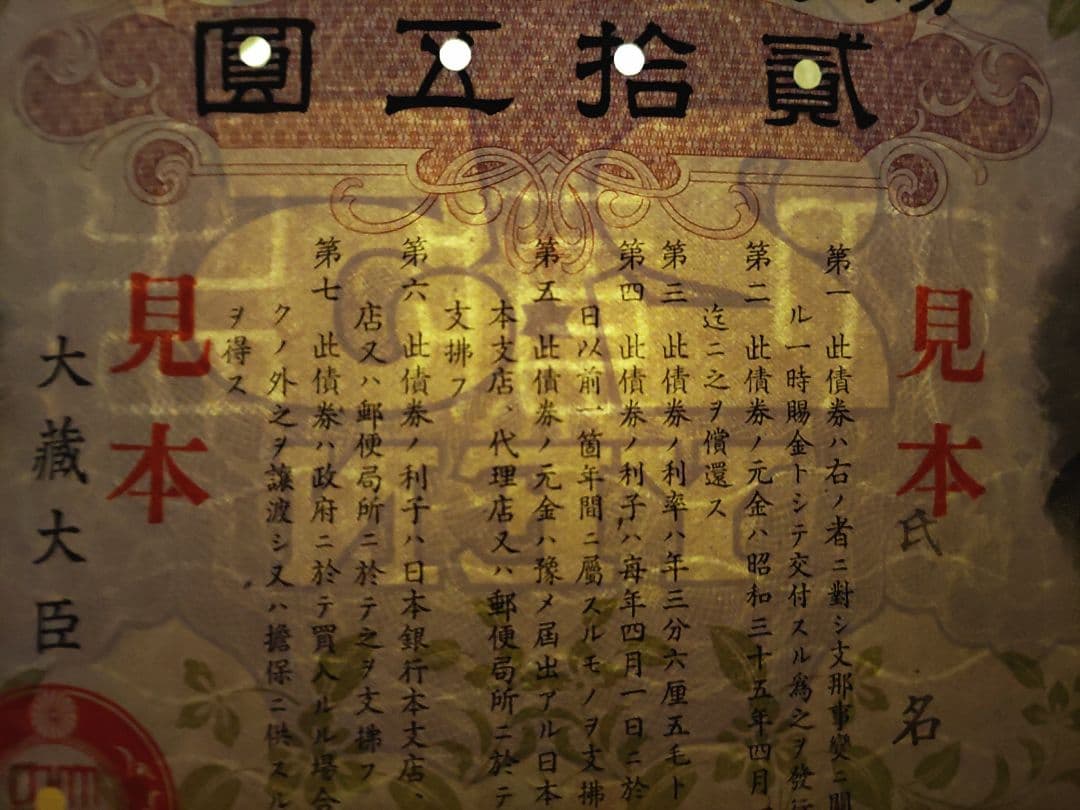 貳拾五圓
見本
氏名
第一 此債券ハ右ノ者ニ對シ支那事變ニ關
ル一時賜金トシテ交付スル爲之ヲ發行
第二 此債券ノ元金ハ昭和三十五年四月一
迄ニ之ヲ償還ス
第三 此債券ノ利率ハ年三分六厘五毛ト
第四 此債券ノ利子ハ每年四月一日ニ於
日以前一箇年間ニ屬スルモノヲ支拂
第五 此債券ノ元金ハ豫メ屆出アル日本
本支店、代理店又ハ郵便局所ニ於テ
支拂フ
第六 此債券ノ利子ハ日本銀行本支店、
店又ハ郵便局所ニ於テ之ヲ支拂フ
第七 此債券ハ政府ニ於テ買入ルル場合
クノ外之ヲ讓渡シ又ハ擔保ニ供スル
ヲ得ス
見本
大藏大臣